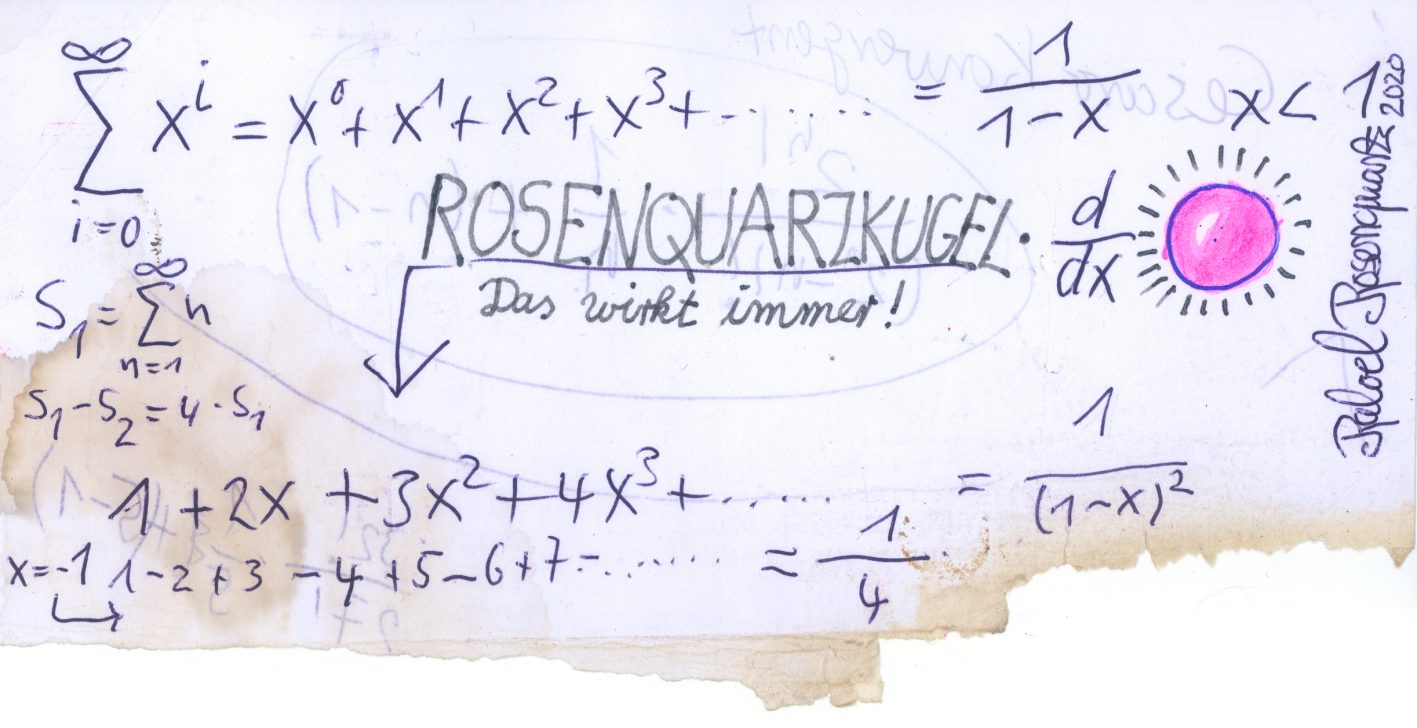 ∞
∑ xⁱ = x⁰ + x¹ + x² + x³ + ........ = 1/(1-x) x < 1
i=0
ROSENQUARZKUGEL · d/dx
Das wirkt immer!
S₁ = ∑ n
n=1
∞
S₁ - S₂ = 4 · S₁
1 + 2x + 3x² + 4x³ + ...... = 1/(1-x)²
x=-1 1 - 2 + 3 - 4 + 5 - 6 + 7 - ....... = 1/4
Rosenquartz 2020